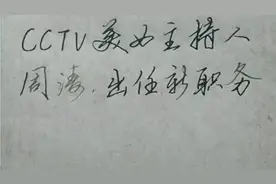 CCTV美女主持人
周涛.出任新职务